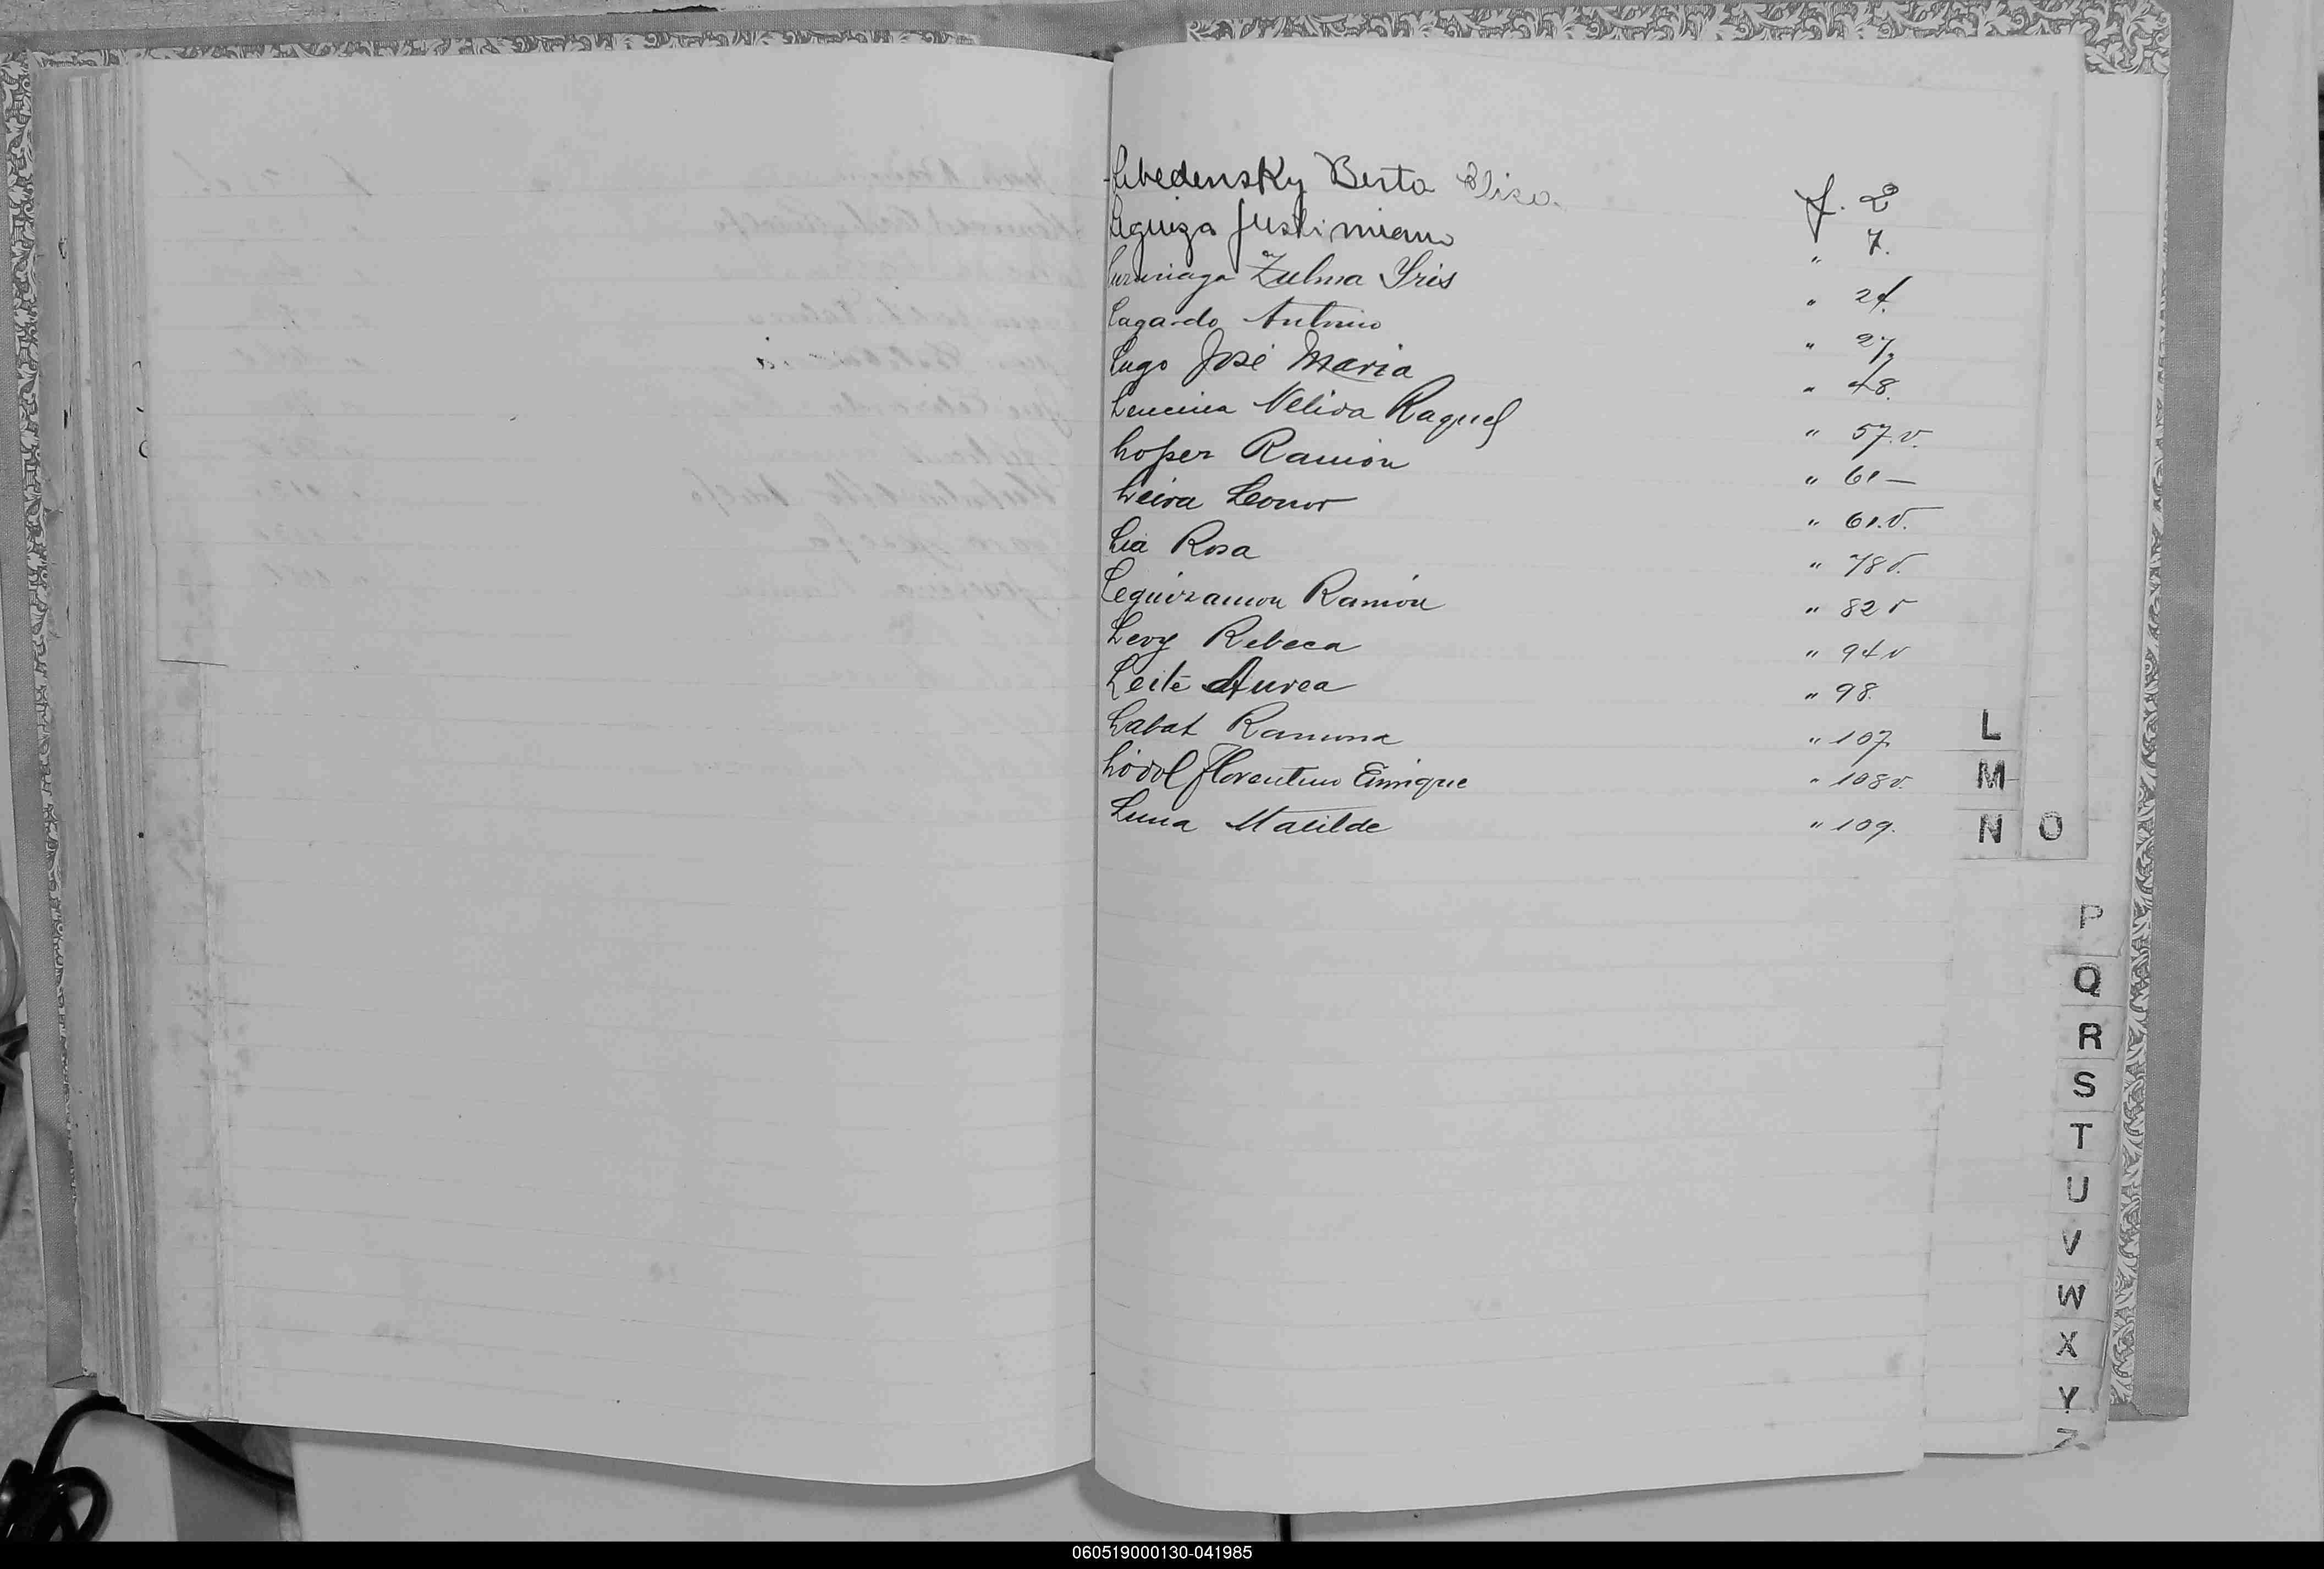 Lebedensky Berta Elisa. f. 2
Leguiza Justiniano " 7.
Zulma Yris " 24.
Lagardo Antonio " 27
Lugo José Maria " 48.
Lencina Nelida Raquel " 57.v.
Lopez Ramón " 61 —
Leiva Leonor " 61.v.
Lia Rosa " 78 v.
Leguizamon Ramón " 82 v
Levy Rebeca " 94 v
Leite Aurea " 98.
Labat Ramona " 107
Florentino Enrique " 108 v.
Luna Matilde " 109.
L
M
N O
P
Q
R
S
T
U
V
W
X
Y
Z
060519000130-041985